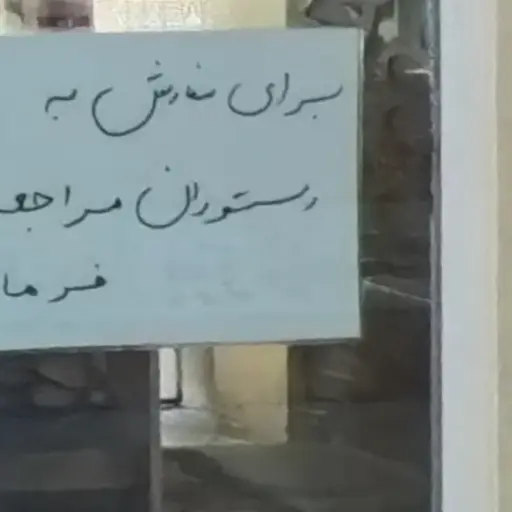 برای سفارش به
رستوران مراجعه
فرما